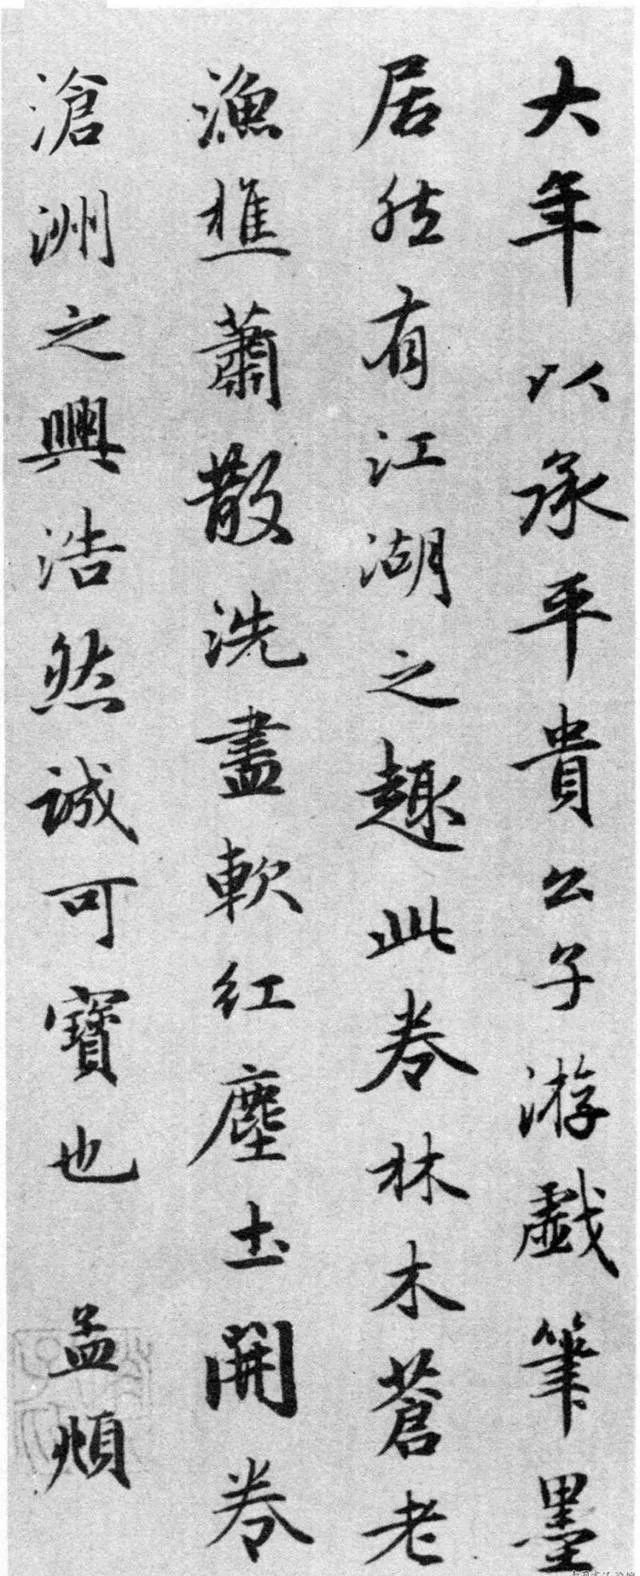 大年以承平貴公子游戲筆墨
居然有江湖之趣此卷林木蒼老
漁樵蕭散洗盡軟紅塵土開卷
滄洲之興浩然誠可寶也 孟頫